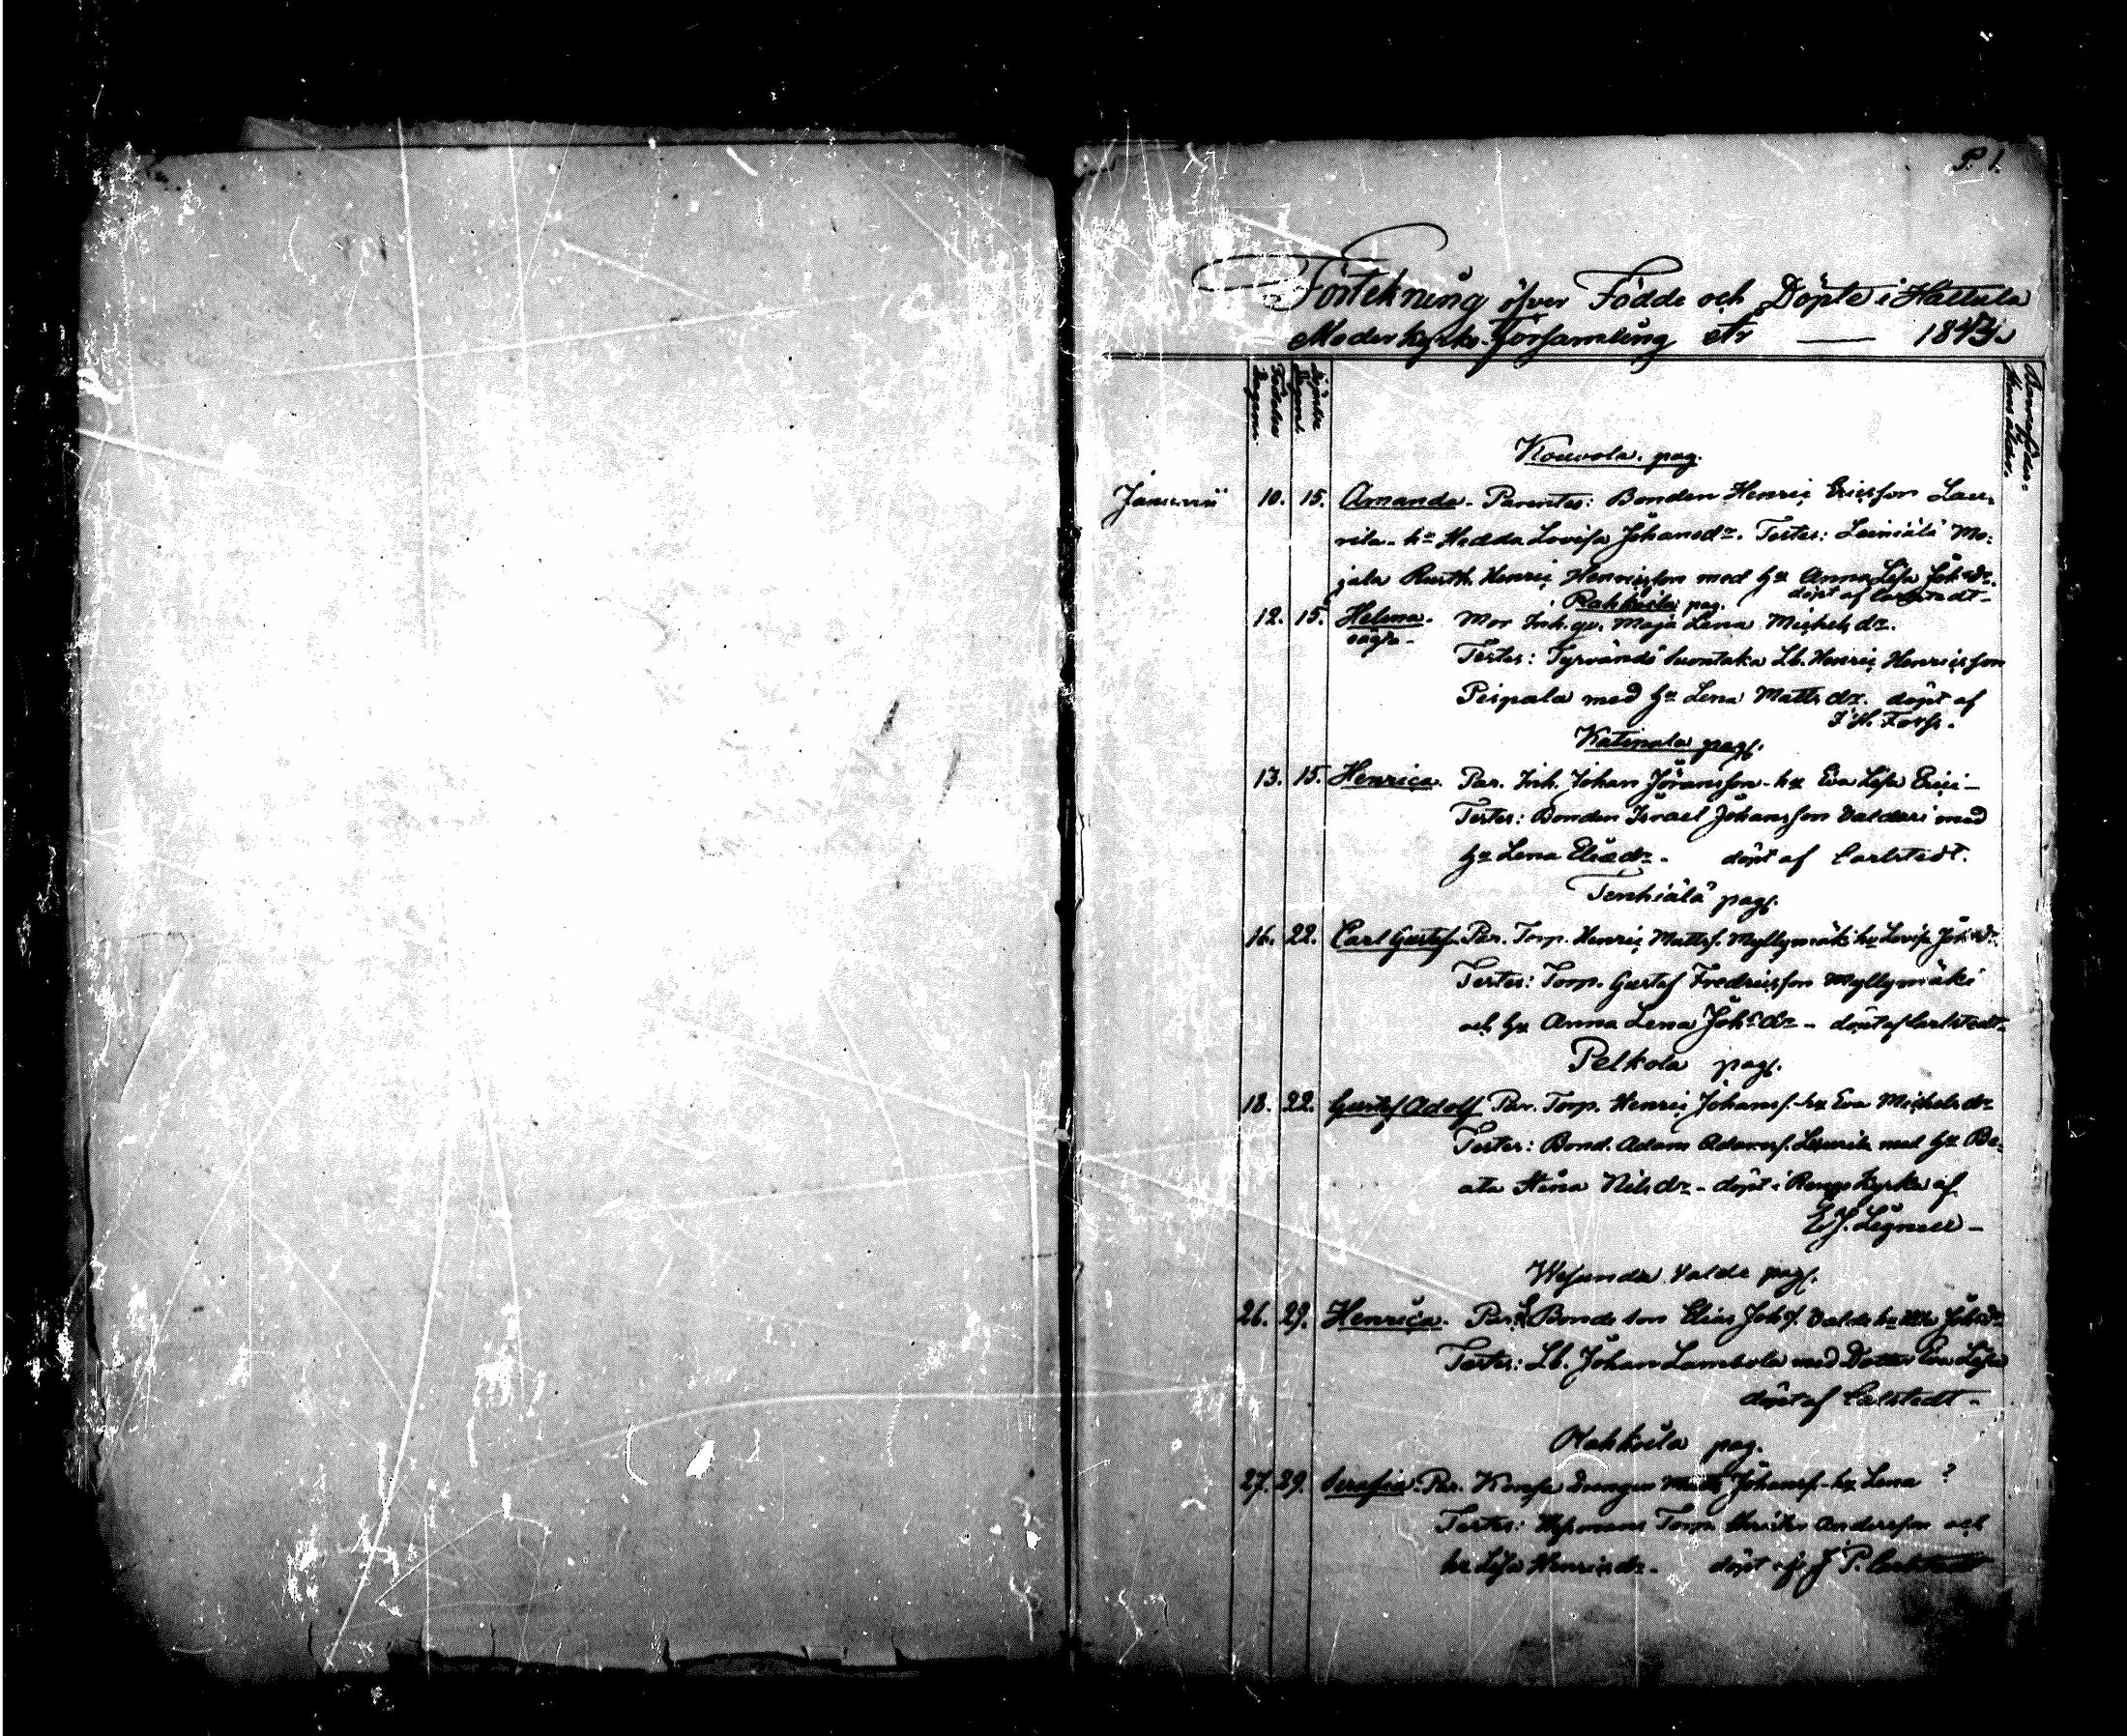 P. 1.
Förtekning öfver Födde och Döpte i Hattula
Moderkyrko-Församling År — 1843.
Födelse Dagen.
Döpelse Dagen.
Kouvola. pag.
Januarii 10. 15. Amanda. Parentes: Bonden Henric Ericsson Lau-
rila. h:u Hedda Lovisa Johansd:r. Testes: Leiniälä Mo-
jala Rusth. Henric Henricsson med h:u Anna Lisa Joh:d:r.
döpt af Carlstedt-
Rahkoila pag.
12. 15. Helena. Mor Inh. qv. Maja Lena Michelsd:r.
oägta-
Testes: Tyrvändö Suontaka Lb. Henric Henricsson
Peipala med h:u Lena Mattsd:r. döpt af
Forss.
Katinala pag.
13. 15. Henrica. Par. Inh. Johan Jöransson- h:u Eva Lisa Erici-
Testes: Bonden Israel Johansson Daldari med
h:u Lena Eliæd:r- döpt af Carlstedt.
Tenhiälä pag.
16. 22. Carl Gustaf. Par. Torp. Henric Mattss. Myllymäki h:u Lovisa Joh:d:r.
Testes: Torp. Gustaf Fredricsson Myllymäki
och h:u Anna Lena Joh:d:r- döpt af Carlstedt-
Pelkola pag.
18. 22. Gustaf Adolf Par. Torp. Henric Johanss. h:u Eva Michelsd:r
Testes: Bond. Adam Adamss. Laurila med h:u Be-
ata Stina Nilsd:r- döpt i Rengo Kyrka af
Legnell-
Wesunda Valde pag.
26. 29. Henrica. Par. Bonde Son Elias Joh. Valde h:u Joh:d:r
Testes: Lb. Johan Lambola med Dotter Eva Lisa
döpt af Carlstedt-
Rahkoila pag.
27. 29. Serafia. Par. Drengen Matts Johanss. h:u Lena ?
Testes: Torp. Anderson och
h:u Lisa Henricsd:r- döpt af J. P. Carlstedt